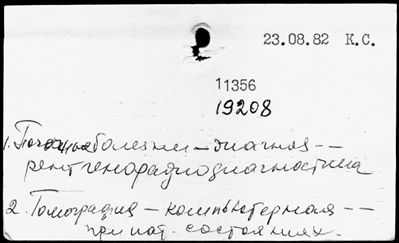 23.08.82 К.С.
11356
19208
1. Почечные болезни – диагноз --
рентгенорадиодиагностика
2. Томография – компьютерная --
при пат. состояниях.